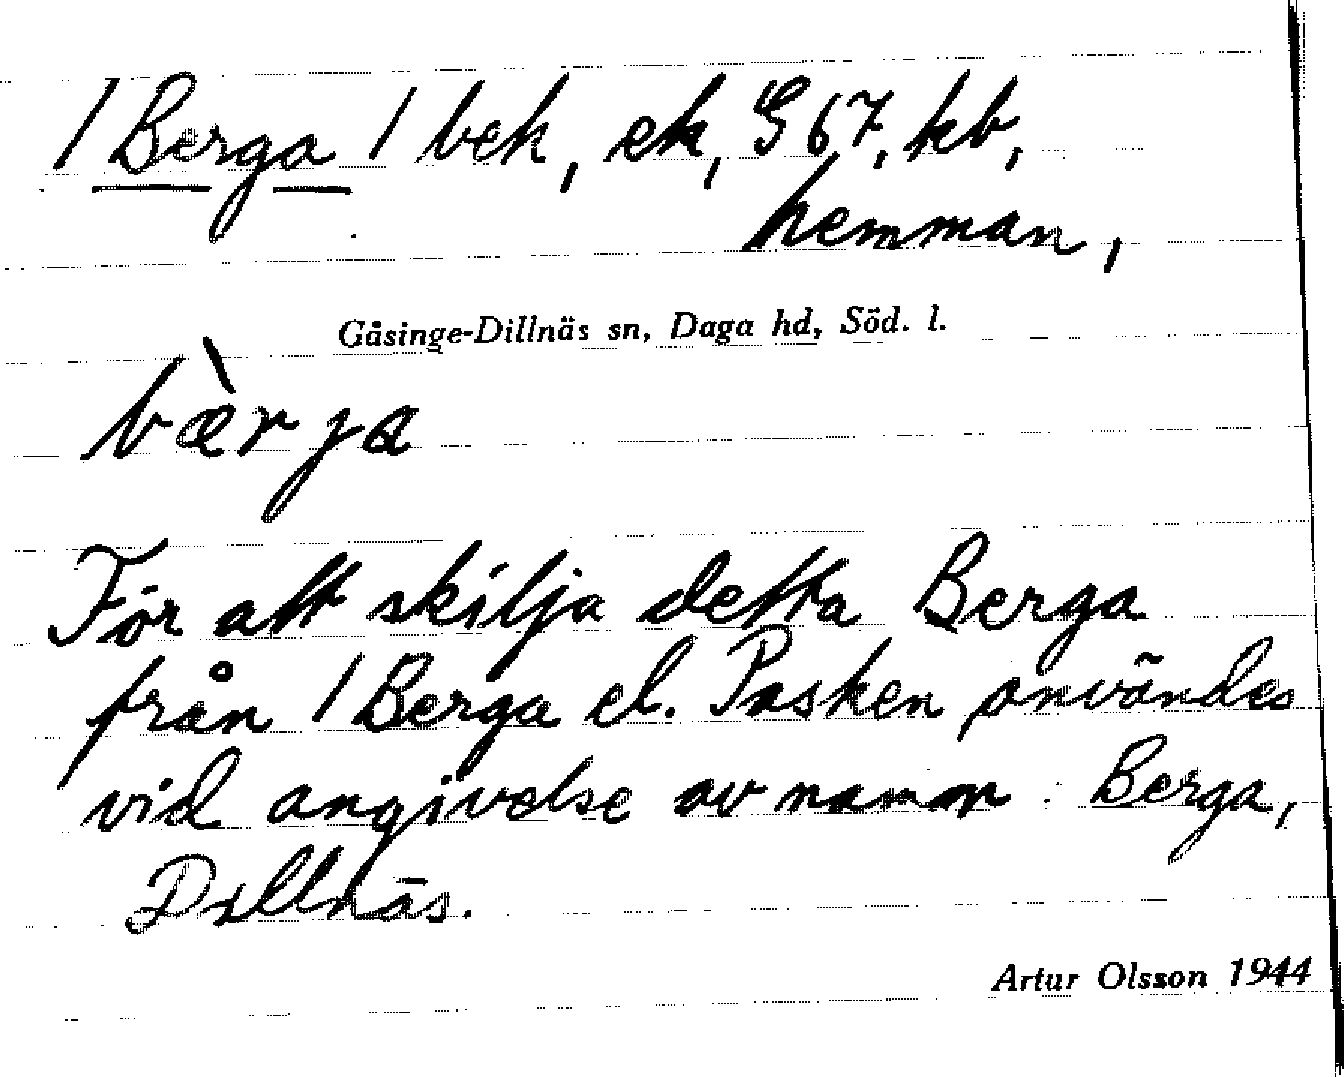 1 Berga / bek, ek, G 67, kb,
hemman,
Gåsinge-Dillnäs sn, Daga hd, Söd. l.
bæ̀rja
För att skilja detta Berga
från 1 Berga el. Pasken användes
vid angivelse av namn: Berga,
Dillnäs.
Artur Olsson 1944